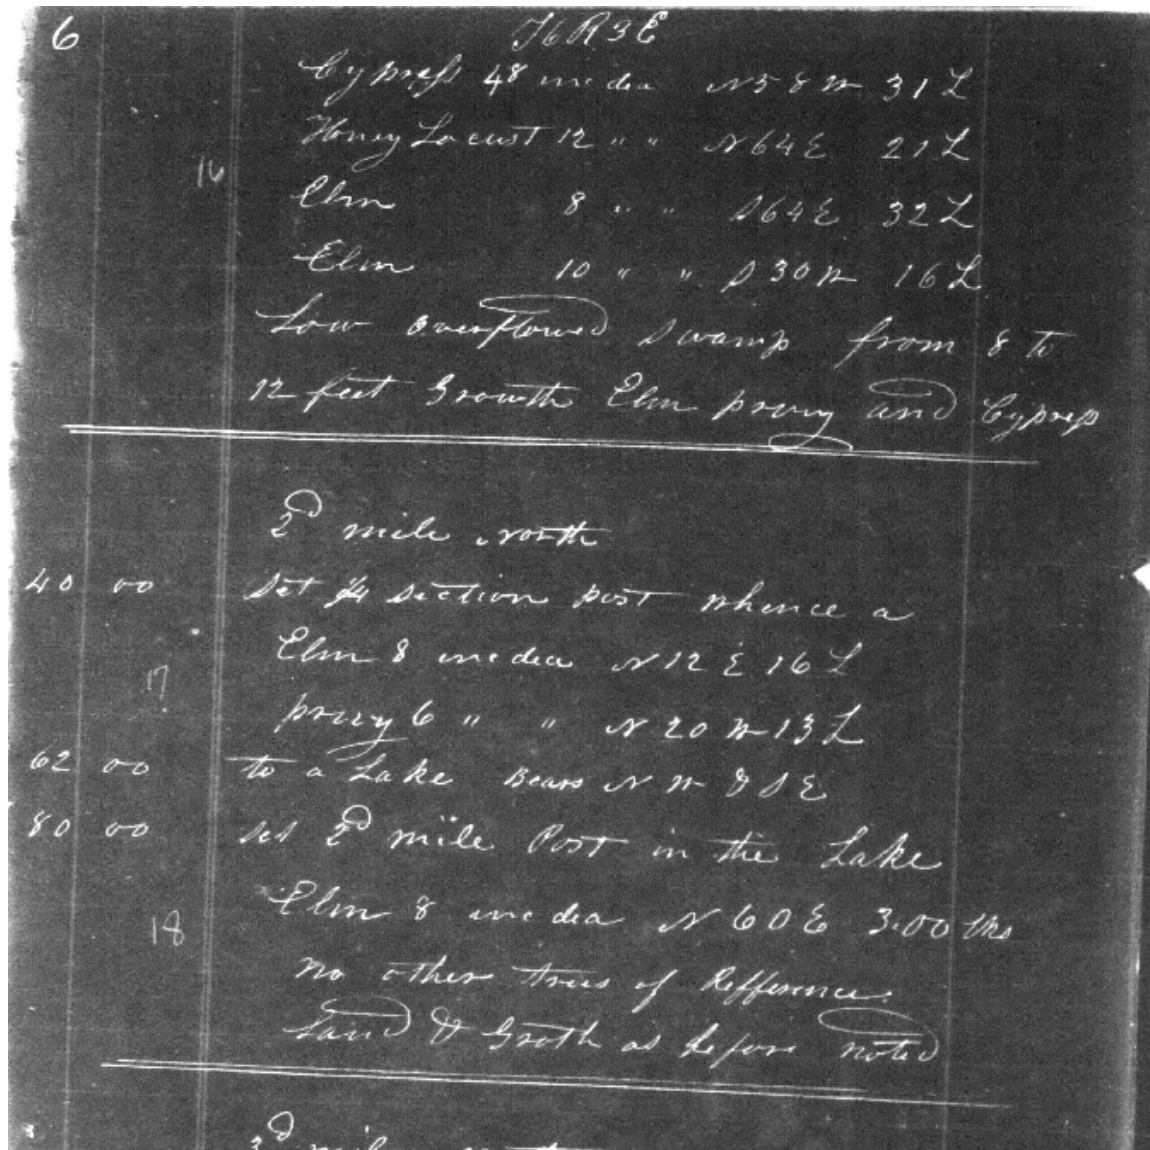 6 T6R3E
Cypress 48 inc dia N58W 31 L
Honey Locust 12 " " N64E 21 L
16
Elm 8 " " S64E 32 L
Elm 10 " " S30W 16 L
Low overflowed swamp from 8 to
12 feet Growth Elm privy and Cypress
2d mile North
40 00 Set 1/4 section post whence a
Elm 8 inc dia N12E 16 L
17
privy 6 " " N20W 13 L
62 00 to a Lake Bears NW & SE
80 00 set 2d mile Post in the Lake
Elm 8 inc dia N60E 3.00 lks
18
no other trees of Refference
Land & Groth as before noted
3d mile